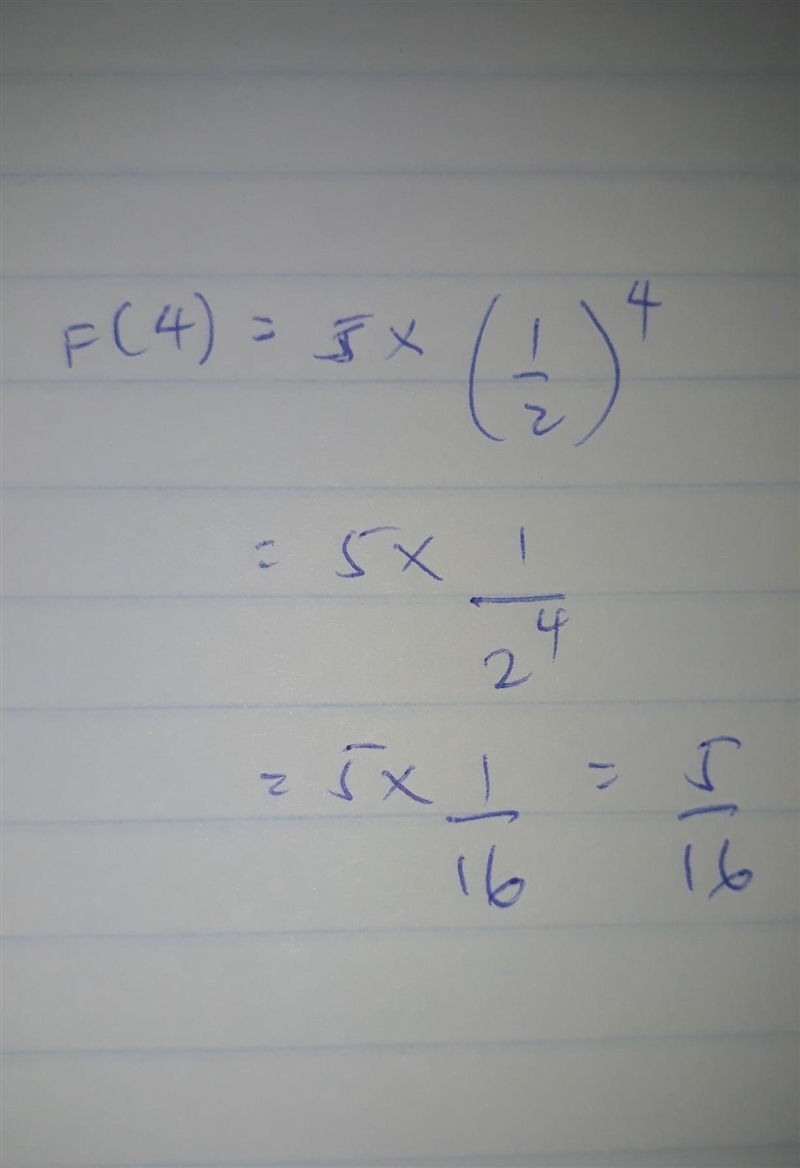 F(4) = 5 × (1/2)^4
= 5 × 1/2^4
= 5 × 1/16 = 5/16